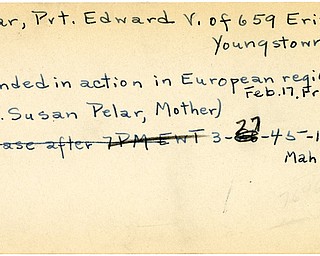 ar, Pvt. Edward V. of 659 Eri
Youngstown
nded in action in European regi
Feb. 17. Fr
. Susan Pelar, Mother)
ease after 7PM EWT 3-27-45-1
Mah